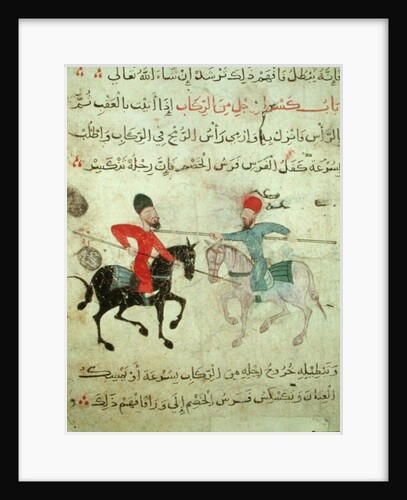 فإنه يبطل بافهم ذلك ترشد إن شاء الله تعالى
باب كسر الرجل من الركاب إذا أتيت بالعقب ثم
الرأس فاترك يد وارمى رأس الرمح في الركاب واطلب
بسرعة كفل الفرس فرس الخصم فإن رجله تنكسر
وتبطيله خروج رجله من الركاب بسرعة أو تمسك
العنان وتكسكس فرس الخصم إلى ورا فافهم ذلك